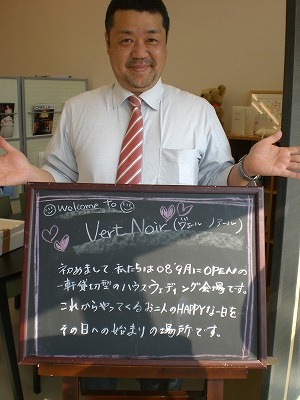 welcome to
Vert Noir (ヴェール ノアール)
初めまして 私たちは 08.9月にOPENの
一軒貸切型のハウスウェディング会場です。
これからやってくるお二人のHAPPYな一日を…
その日への始まりの場所です。